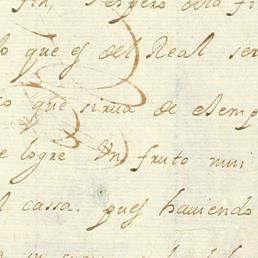 fin, espero de la fi
lo que es del Real ser
que sirua de exemp
e logre Un fruto mui
l cassa. pues hauiendo